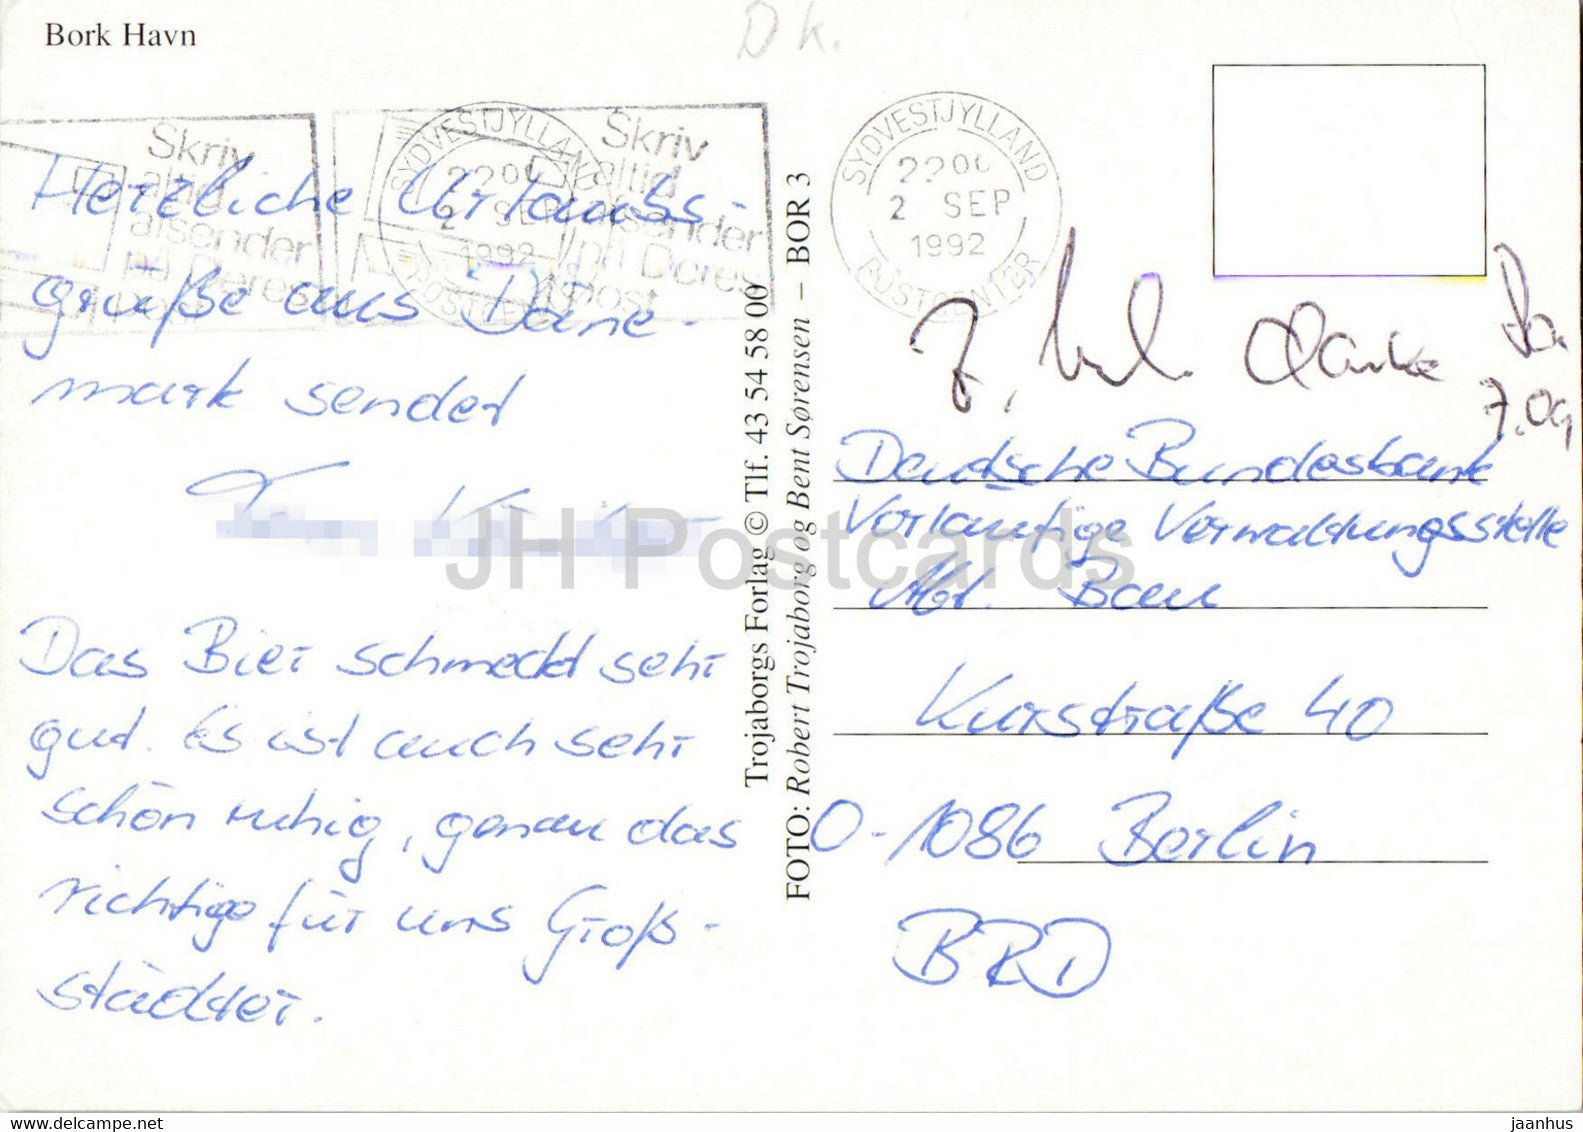 Bork Havn
Dk.
Skriv
altid
afsender
på Deres
post
SYDVESTJYLLAND
2200
2 SEP
1992
POSTCENTER
Skriv
altid
afsender
på Deres
post
SYDVESTJYLLAND
2200
2 SEP
1992
POSTCENTER
Herzliche Urlaubs-
grüße aus Däne-
mark sendet
Das Bier schmeckt sehr
gut. Es ist auch sehr
schön ruhig, genau das
richtige für uns Groß-
städter.
Trojaborgs Forlag © Tlf. 43 54 58 00
FOTO: Robert Trojaborg og Bent Sørensen – BOR 3
Danke
7.09
Deutsche Bundesbank
Vorläufige Verwaltungsstelle
Abt. Bau
Kurstraße 40
O-1086 Berlin
BRD
JH Postcards
www.delcampe.net
jaanhus